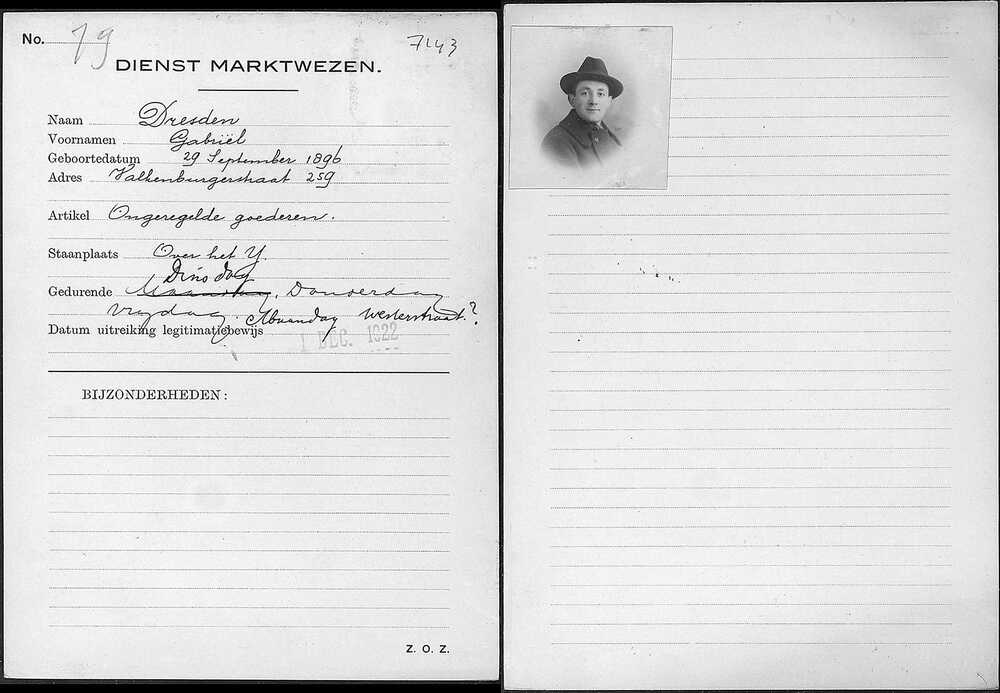 No. 79 7143
DIENST MARKTWEZEN.
Naam Dresden
Voornamen Gabriël
Geboortedatum 29 September 1896
Adres Valkenburgerstraat 259
Artikel Ongeregelde goederen.
Staanplaats Over het Y.
Dinsdag
Gedurende Maandag, Donderdag
Vrijdag. Maandag Westerstraat?
Datum uitreiking legitimatiebewijs
1 DEC. 1922
BIJZONDERHEDEN:
Z. O. Z.